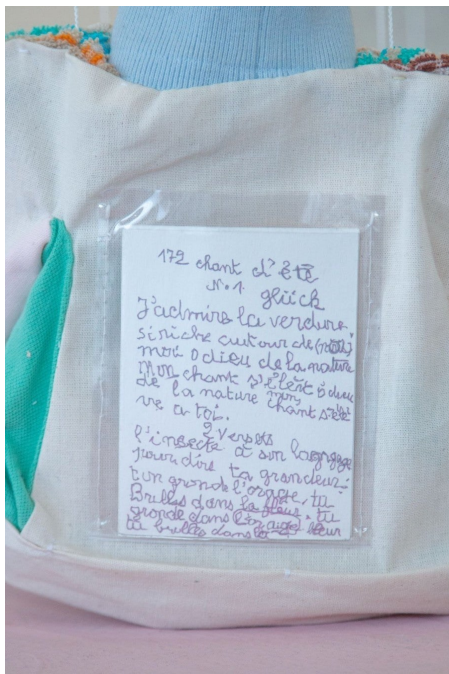 172 chant d'été
N° 1.
glück
J'admire la verdure
si riche autour de (moi)
moi O dieu de la nature
mon chant s'élèt ô dieu
de la nature mon chant s'élè
ve a toi.
2 Versets
l'insecte à son lagage
pour dire ta grandeur:
ton gronde l'orage, tu
Brilles dans la fleur. tu
gronde dans l'orage
tu brille dans la fleur